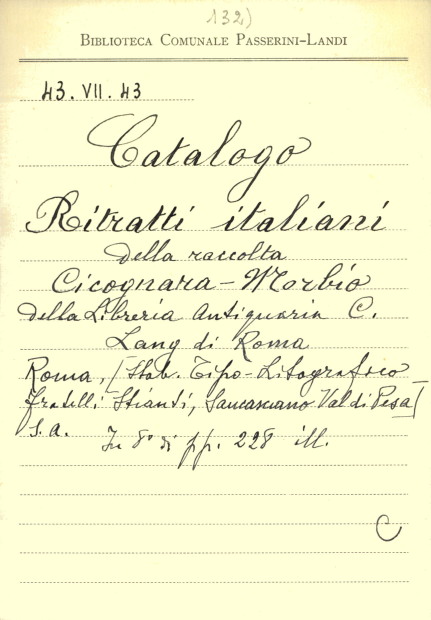 132)
BIBLIOTECA COMUNALE PASSERINI-LANDI
43. VII. 43
Catalogo
Ritratti italiani
della raccolta
Cicognara - Morbio
della Libreria Antiquaria C.
Lang di Roma
Roma, (Stab. Tipo-Litografico
fratelli Stianti, Sancasciano Val di Pesa)
s. a.
In 8° di pp. 228 ill.
C